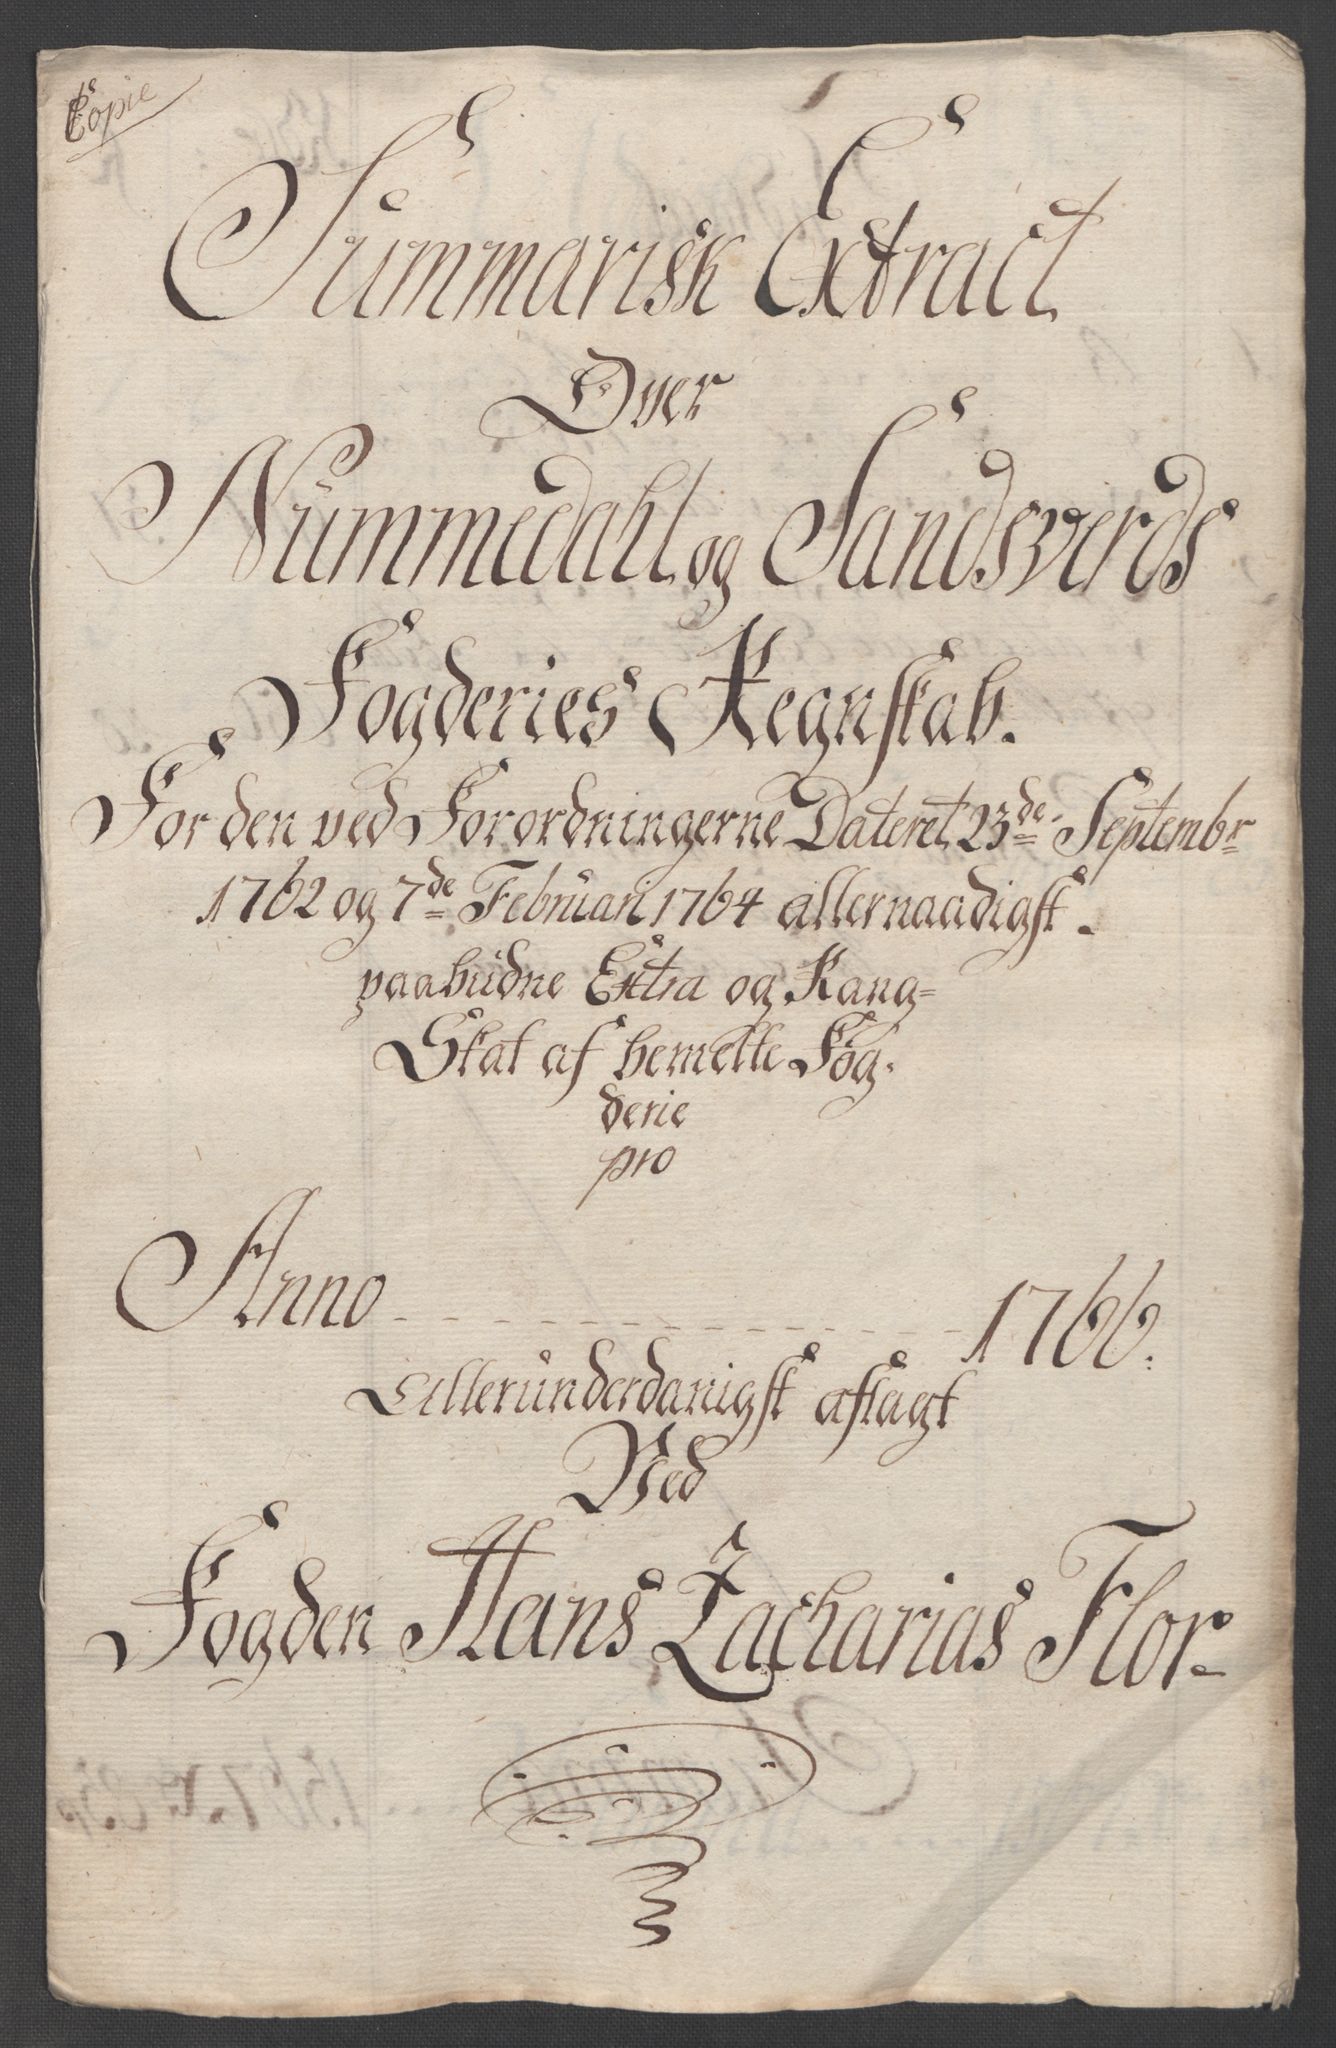 Copie
Summarisk Extract
Over
Nummedahl og Sandsverds
Fogderies Regnskab.
For den ved Forordningerne Dateret 23de Septembr
1762 og 7de Februari 1764 allernaadigst
paabudne Extra og Rang=
Skat af bemelte Fog-
derie
pro
Anno 1766.
Allerunderdanigst aflagt
Ved
Fogden Hans Zacharias Flor